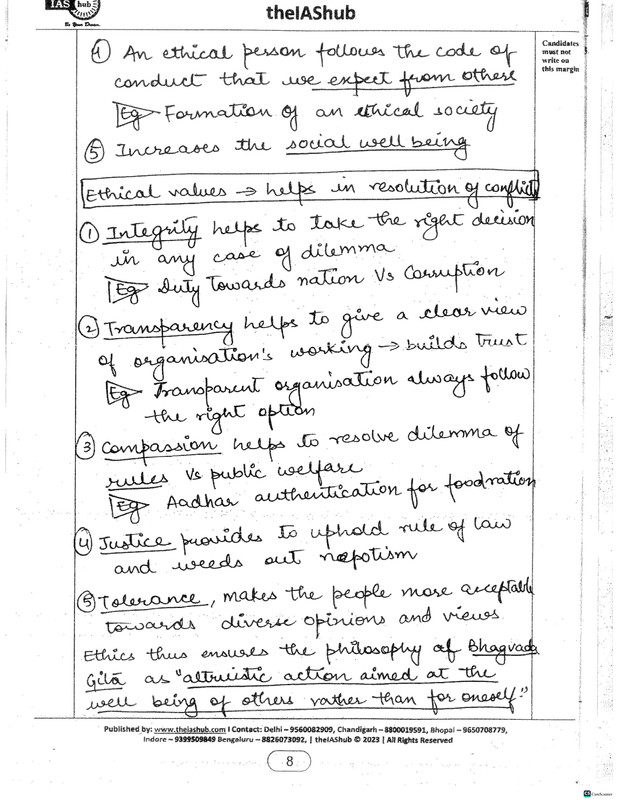 IAS hub
Be Your Dream
theIAShub
Candidates
must not
write on
this margin
④ An ethical person follows the code of
conduct that we expect from others
Eg Formation of an ethical society
⑤ Increases the social well being
Ethical values → helps in resolution of conflict
① Integrity helps to take the right decision
in any case of dilemma
Eg Duty towards nation Vs Corruption
② Transparency helps to give a clear view
of organisation's working → builds trust
Eg Transparent organisation always follow
the right option
③ Compassion helps to resolve dilemma of
rules Vs public welfare
Eg Aadhar authentication for food ration
④ Justice provides to uphold rule of law
and weeds out nepotism
⑤ Tolerance, makes the people more acceptable
towards diverse opinions and views
Ethics thus ensures the philosophy of Bhagvada
Gita as "altruistic action aimed at the
well being of others rather than for oneself."
Published by: www.theiashub.com I Contact: Delhi – 9560082909, Chandigarh – 8800019591, Bhopal – 9650708779,
Indore – 9399509849 Bengaluru – 8826073092, | theIAShub © 2023 | All Rights Reserved
8
CamScanner